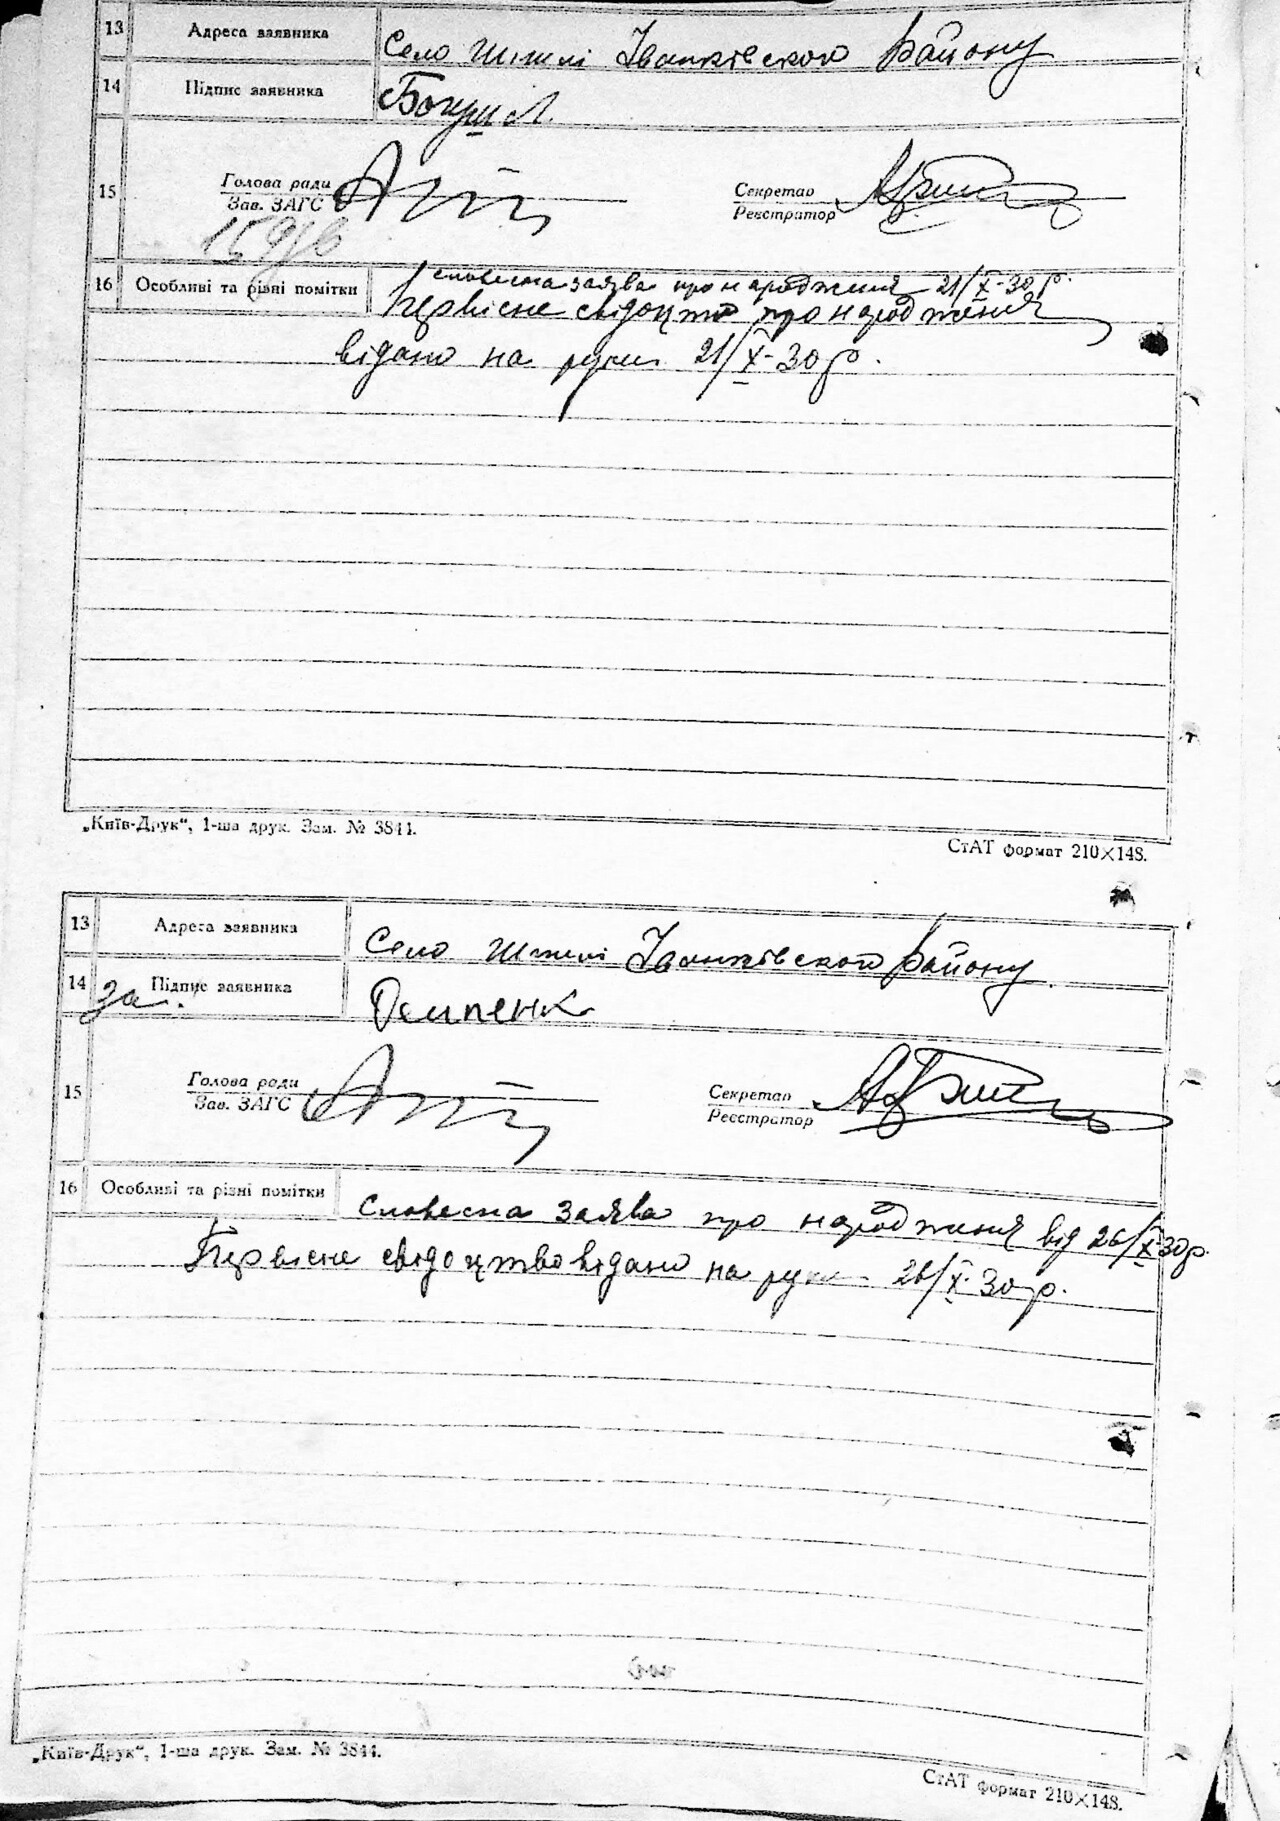 13 Адреса заявника Село Шпилі Іванківского району
14 Підпис заявника Богуш Л.
15
Голова ради
Зав. ЗАГС
Секретар
Реєстратор
словесна заява про народження 21/X-30 р.
16 Особливі та різні помітки Первісне свідоцтво про народження
відано на руки 21/X-30 р.
„Київ-Друк“, 1-ша друк. Зам. № 3844.
СтАТ формат 210×148.
13 Адреса заявника Село Шпилі Іванківского району
14 за. Підпис заявника Осипенко
15
Голова ради
Зав. ЗАГС
Секретар
Реєстратор
16 Особливі та різні помітки Словесна заява про народження від 26/X-30 р.
Первісне свідоцтво відано на руки 26/X-30 р.
„Київ-Друк“, 1-ша друк. Зам. № 3844.
СтАТ формат 210×148.